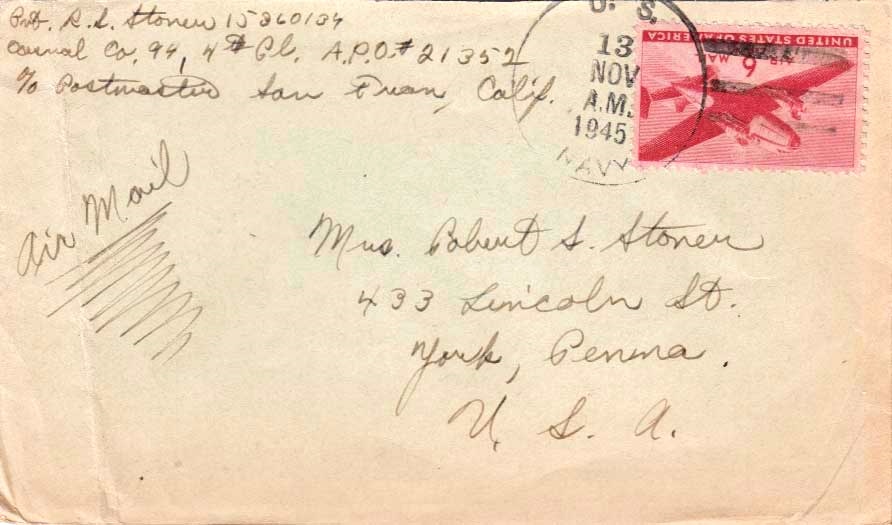 Pvt. R. S. Stoner 15260134
Casual Co. 94, 4th Pl. A.P.O.# 21352
c/o Postmaster San Fran, Calif.
U. S.
13
NOV
A.M.
1945
NAVY
UNITED STATES OF AMERICA
6¢ AIR MAIL
Air Mail
Mrs. Robert S. Stoner
433 Lincoln St.
York, Penna.
U. S. A.